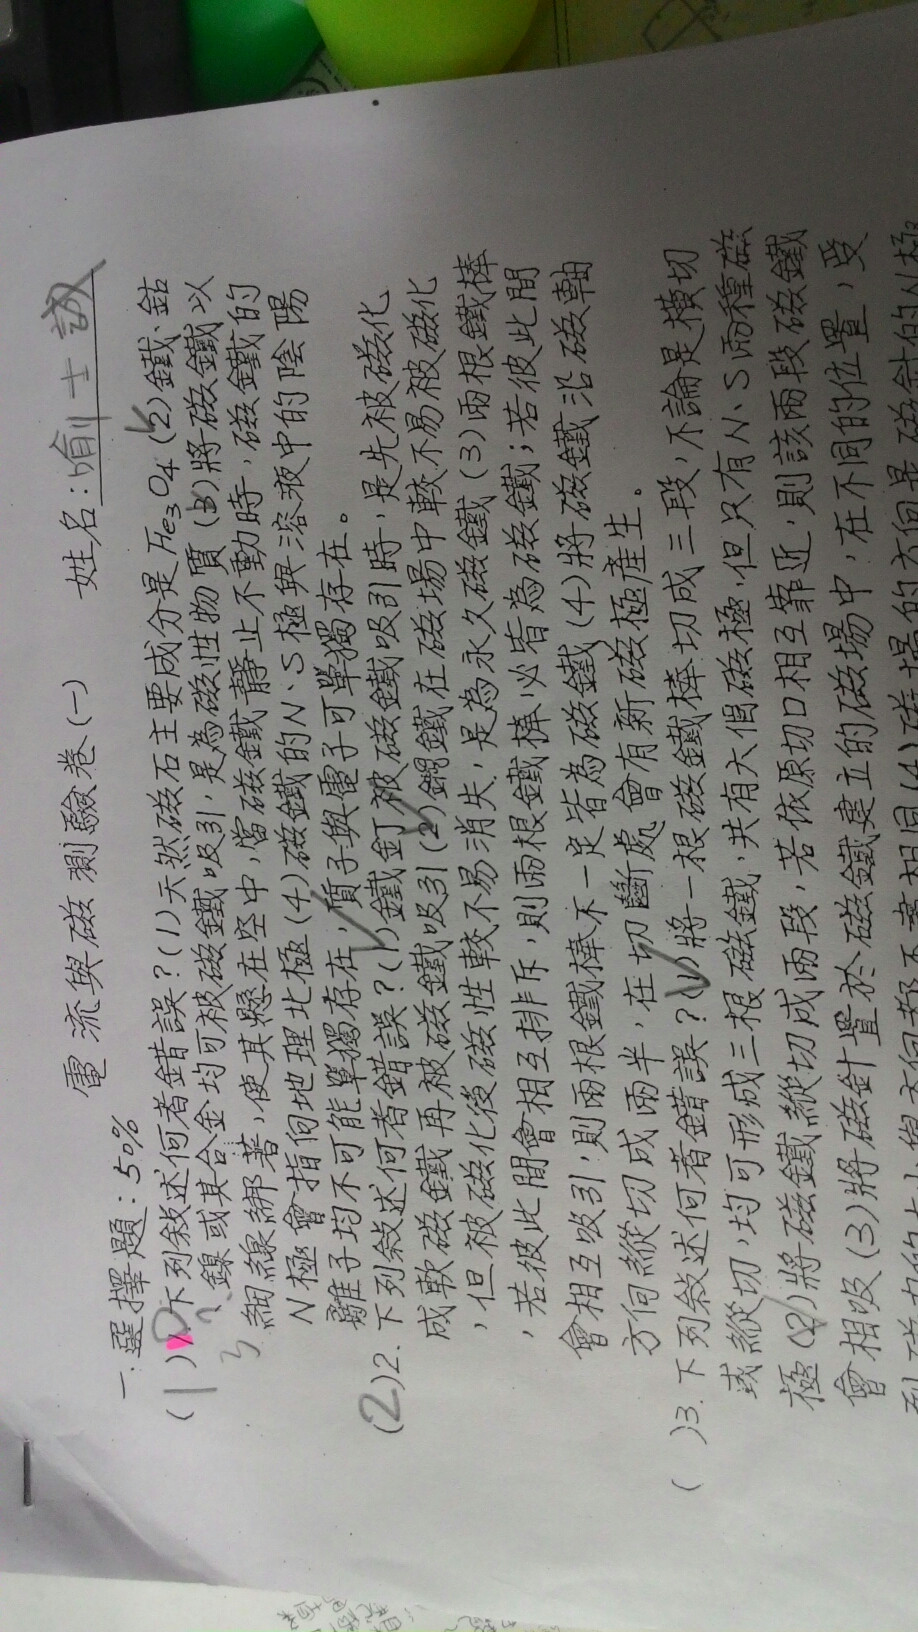 電流與磁測驗卷(一) 姓名:喻士誠
一.選擇題:5%
(1)1.下列敘述何者錯誤?(1)天然磁石主要成分是Fe3O4(2)鐵、鈷
、鎳或其合金均可被磁鐵吸引,是為磁性物質(3)將磁鐵以
細線綁著,使其懸在空中,當磁鐵靜止不動時,磁鐵的
N極會指向地理北極(4)磁鐵的N、S極與溶液中的陰陽
離子均不可能單獨存在,質子與電子可單獨存在。
(2)2.下列敘述何者錯誤?(1)鐵釘被磁鐵吸引時,是先被磁化
成軟磁鐵再被磁鐵吸引(2)鋼鐵在磁場中較不易被磁化
,但被磁化後磁性較不易消失,是為永久磁鐵(3)兩根鐵棒
,若彼此間會相互排斥,則兩根鐵棒必皆為磁鐵;若彼此間
會相互吸引,則兩根鐵棒不一定皆為磁鐵(4)將磁鐵沿磁軸
方向縱切成兩半,在切斷處會有新磁極產生。
( )3.下列敘述何者錯誤?(1)將一根磁鐵棒切成三段,不論是橫切
或縱切,均可形成三根磁鐵,共有六個磁極,但只有N、S兩種磁
極(2)將磁鐵縱切成兩段,若依原切口相互靠近,則該兩段磁鐵
會相吸(3)將磁針置於磁鐵建立的磁場中,在不同的位置,受